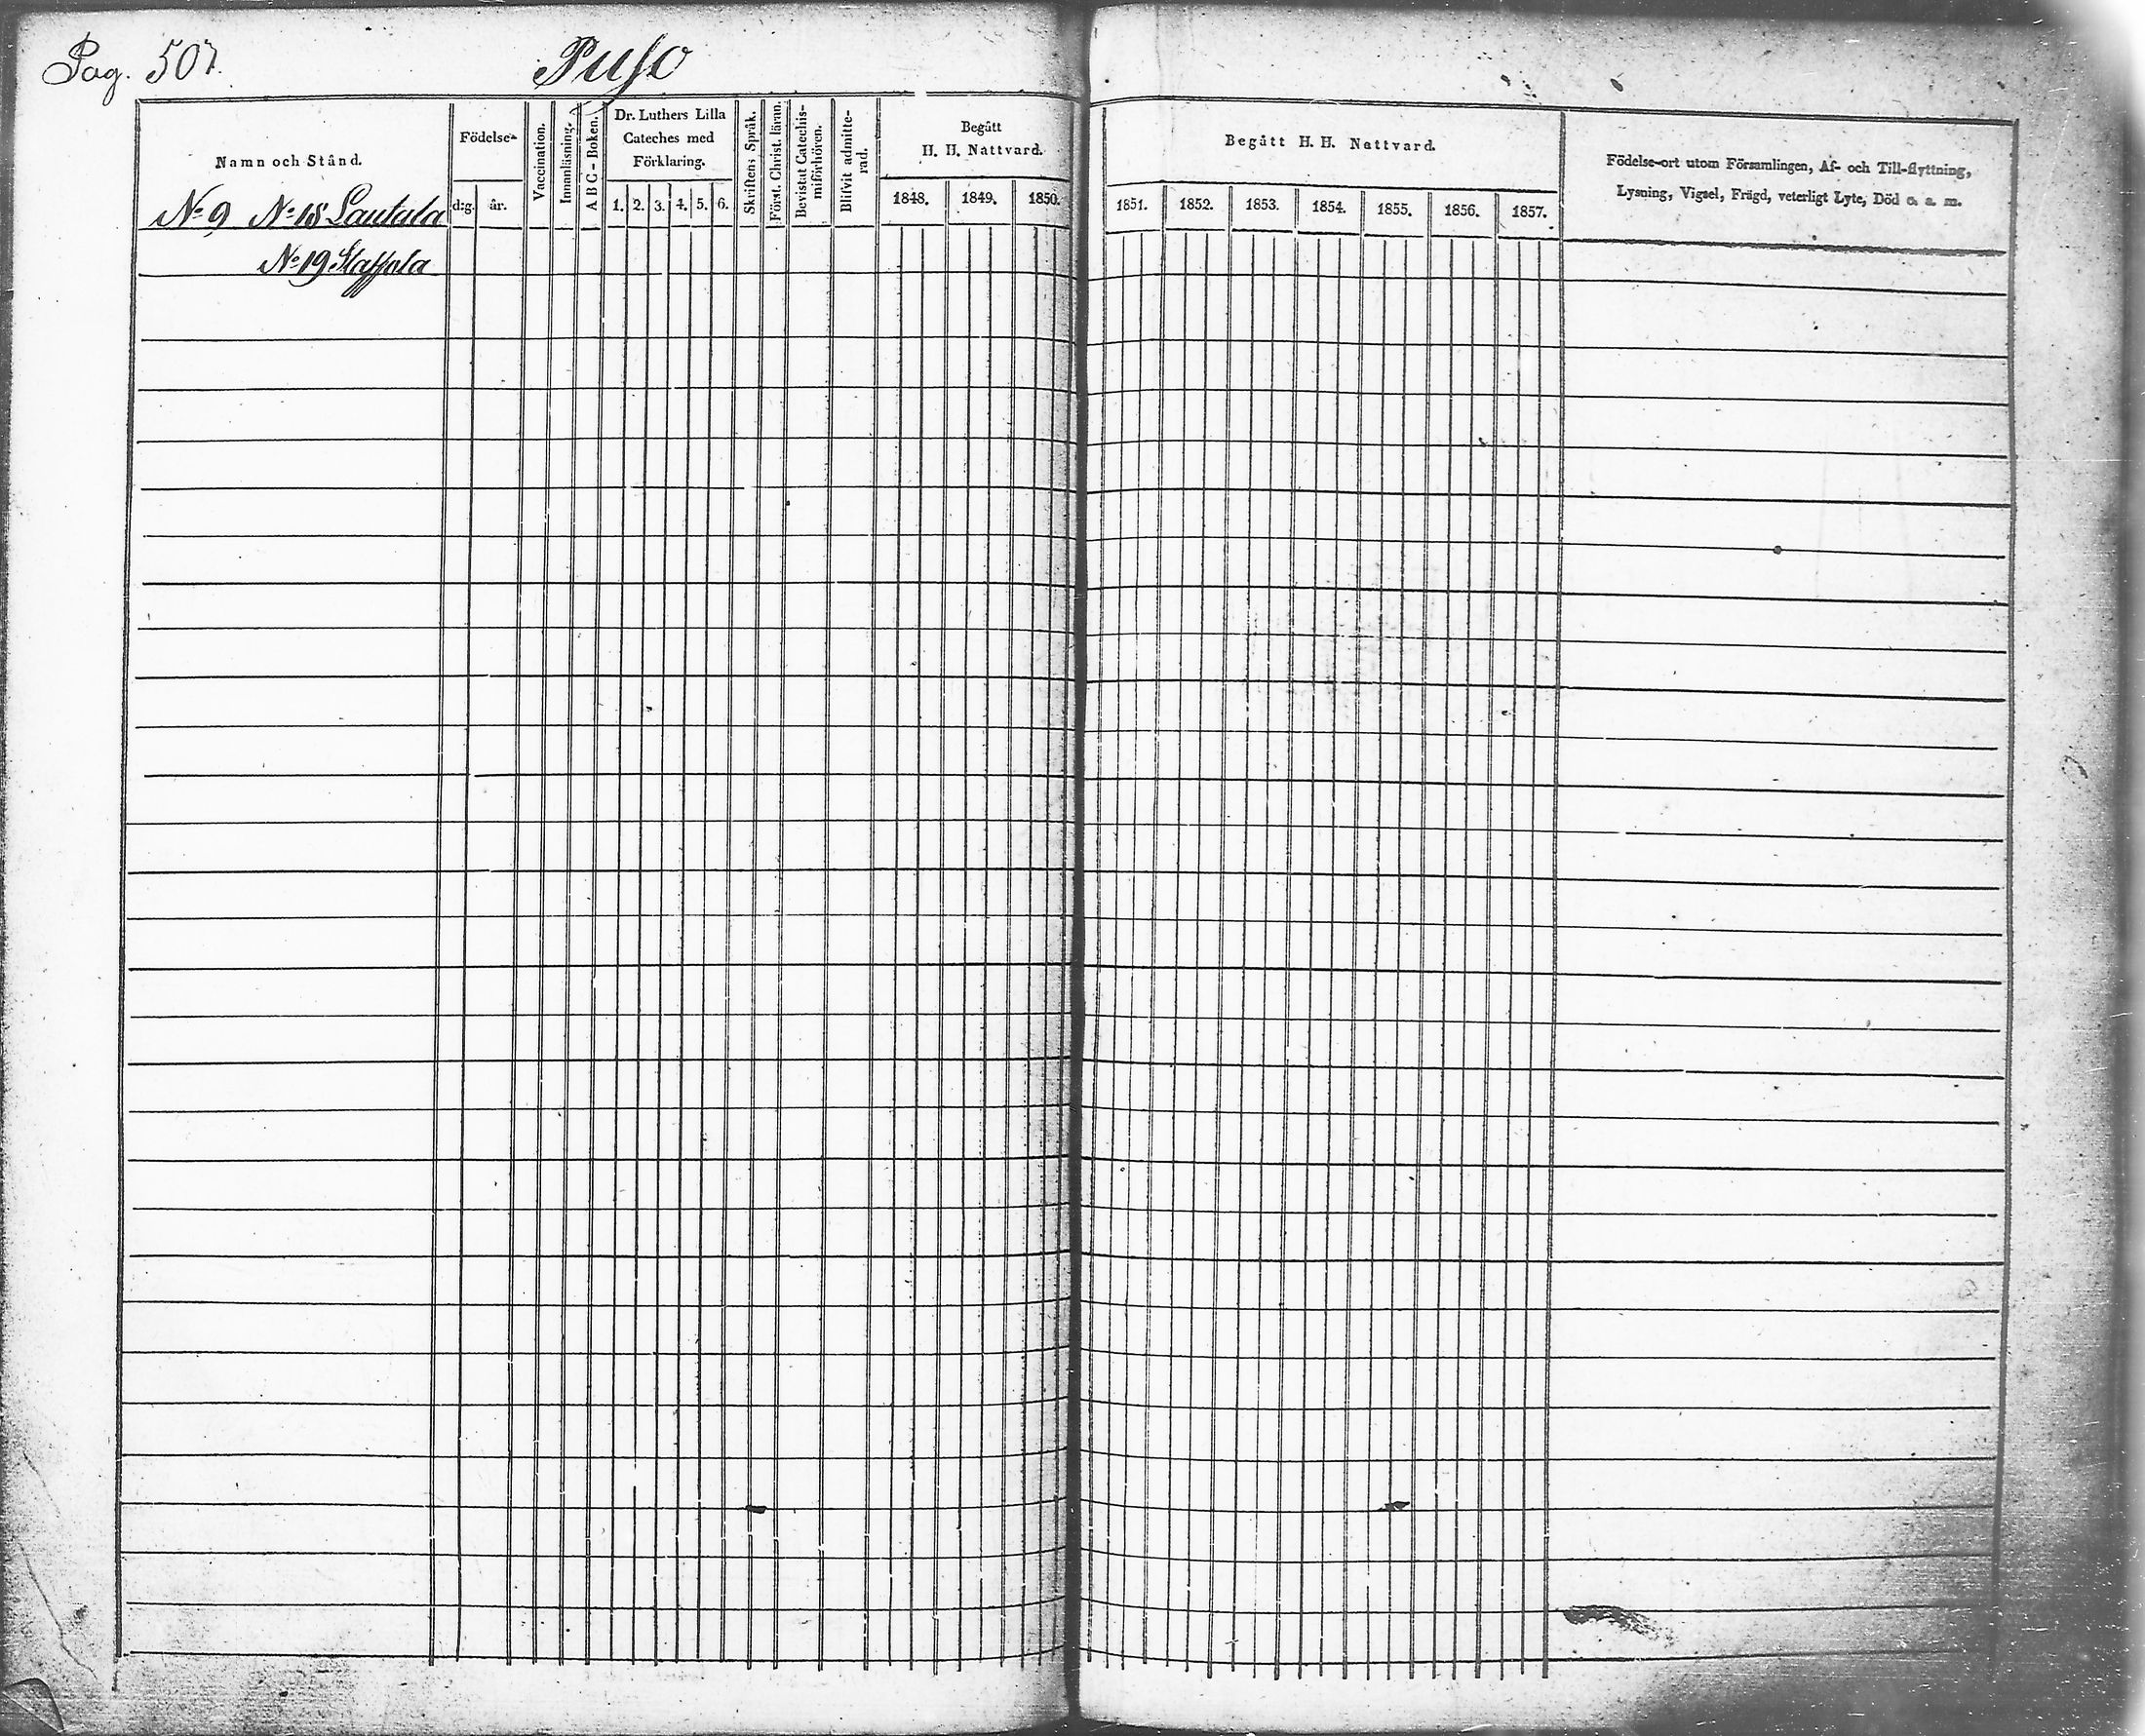 Pag. 507.
Puso
Namn och Stånd.
Födelse-
d:g.
år.
Vaccination.
Innanläsning.
A B C - Boken.
Dr. Luthers Lilla
Cateches med
Förklaring.
1. 2. 3. 4. 5. 6.
Skriftens Språk.
Först. Christ. läran.
Bevistat Catechis-
miförhören.
Blifvit admitte-
rad.
Begått
H. H. Nattvard.
1848. 1849. 1850.
Begått H. H. Nattvard.
1851. 1852. 1853. 1854. 1855. 1856. 1857.
Födelse-ort utom Församlingen, Af- och Till-flyttning,
Lysning, Vigsel, Frägd, veterligt Lyte, Död o. a. m.
No 9 No 18 Lautala
No 19 Staffola